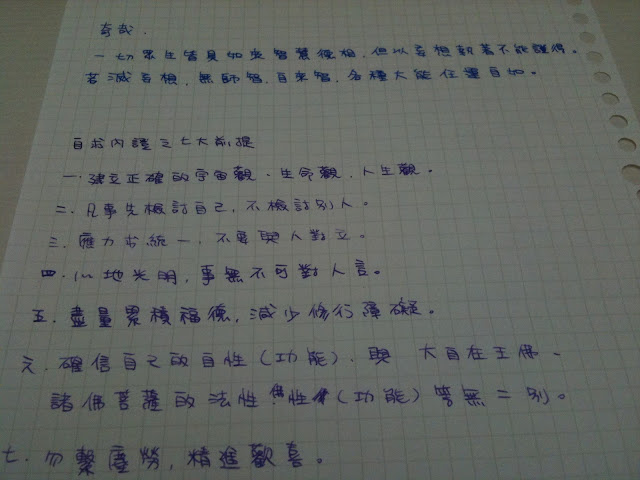 奇哉.
一切眾生皆具如來智慧德相,但以妄想執著不能證得。
若滅妄想,無師智,自來智,各種大能任運自如。
自求內證之七大前提
一.建立正確的宇宙觀.生命觀.人生觀。
二.凡事先檢討自己,不檢討別人。
三.應力求統一,不要與人對立。
四.心地光明,事無不可對人言。
五.盡量累積福德,減少修行障礙。
六.確信自己的自性(功能),與 大自在王佛、
諸佛菩薩的法性 性(功能)等無二別。
七.勿繫塵勞,精進歡喜。